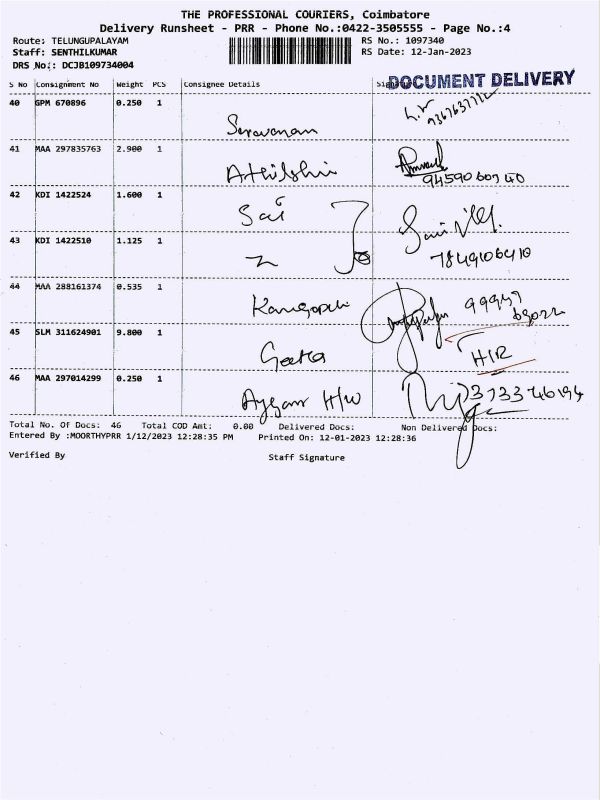 THE PROFESSIONAL COURIERS, Coimbatore
Delivery Runsheet - PRR - Phone No.:0422-3505555 - Page No.:4
Route: TELUNGUPALAYAM
Staff: SENTHILKUMAR
DRS No.: DCJB109734004
RS No.: 1097340
RS Date: 12-Jan-2023
DOCUMENT DELIVERY
S No Consignment No Weight PCS Consignee Details
40 GPM 670896 0.250 1 Saravanan
41 MAA 297835763 2.900 1
42 KDI 1422524 1.600 1 Sai
43 KDI 1422510 1.125 1 7849106410
44 MAA 288161374 0.535 1
45 SLM 311624901 9.800 1 Geetha
46 MAA 297014299 0.250 1 H/W
Total No. Of Docs: 46 Total COD Amt: 0.00 Delivered Docs: Non Delivered Docs:
Entered By :MOORTHYPRR 1/12/2023 12:28:35 PM Printed On: 12-01-2023 12:28:36
Verified By Staff Signature